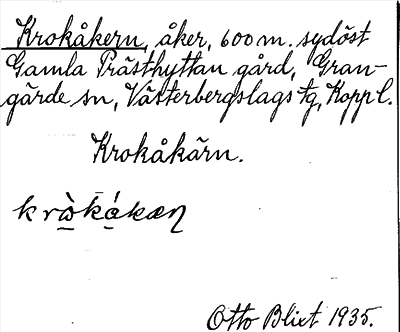 Krokåkern, åker, 600 m. sydöst
Gamla Prästhyttan gård, Gran-
gärde sn, Västerbergslags tg, Kopp l.
Krokåkärn.
kròkákæn
Otto Blixt 1935.